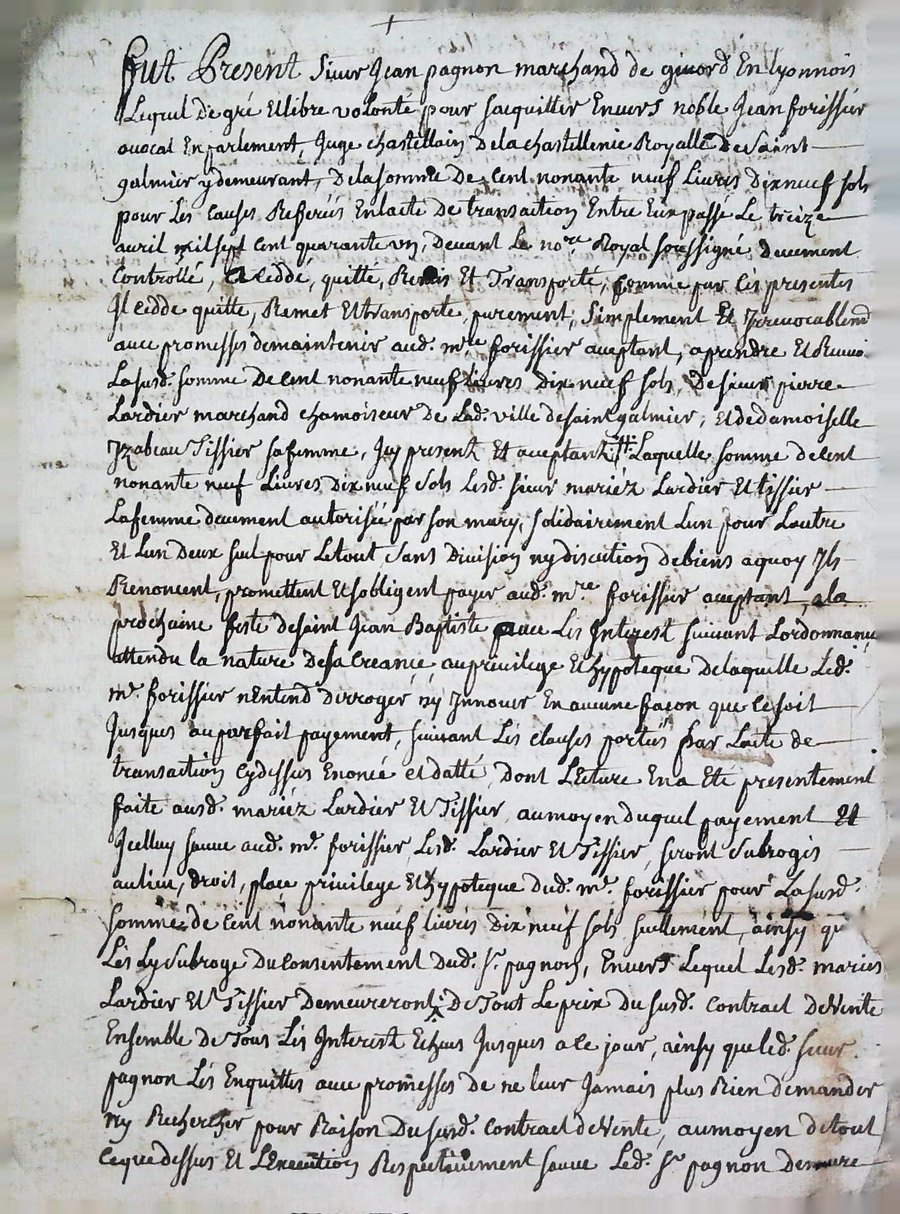 fut Present Sieur Jean pagnon marchand de givord En lyonnois
Lequel de gré Et libre volonté pour sacquitter Envers noble Jean forissier
avocat En parlement, Juge chastellain de la chastellenie Royalle de Saint
galmier y demeurant, de la somme de Cent nonante neuf Livres dix neuf sols
pour Les causes Referées En lacte de transaction Entre Eux passé Le treize
avril mil sept Cent quarante un, devant Le nore Royal soussigné deuement
Controllé, a Ceddé, quitté, Remis Et Transporté, comme par Ces presentes
Il Cedde quitte, Remet Et transporte, purement, simplement Et Irrevocablemt
avec promesses de maintenir aud. mre forissier aceptant, a prendre Et Recevoir
La susd. somme de Cent nonante neuf Livres dix neuf sols, de sieur pierre
Lardier marchand chamoiseur de Lad. ville de saint galmier, Et de damoiselle
Izabeau Tissier sa femme, Icy present Et aceptant, Laquelle somme de Cent
nonante neuf Livres dix neuf sols Lesd. sieur mariéz Lardier Et tissier
La femme deuement autorisée par son mary, solidairement Lun pour Lautre
Et Lun deux seul pour Le tout sans division ny discution de biens a quoy Ils
Renoncent, promettent Et sobligent payer aud. mre forissier aceptant, a la
prochaine feste de saint Jean Baptiste avec Les Interest suivant Lordonnance,
attendu la nature de sa Creance au privilege Et hypoteque de laquelle Led.
mr. forissier nEntend derroger ny Innover En aucune façon que ce soit
Jusques au parfait payement, suivant Les clauses portées par Lacte de
transaction cy dessus Enoncé et datté, dont Lecture En a Eté presentement
faite ausd. mariéz Lardier Et Tissier, au moyen duquel payement Et
Icelluy sauve aud. mr. forissier, Lesd. Lardier Et Tissier, seront subrogés
au lieu, droit, place privilege Et hypoteque dud. mr. forissier pour La susd.
somme de Cent nonante neuf livres dix neuf sols seullement, ainsy qu
Les Ly subroge du Consentement dud. sr. pagnon, Envers Lequel Lesd. mariés
Lardier Et Tissier demeureront de Tout Le prix du susd. Contract de Vente
Ensemble de Tous Les Interest Echeus Jusques a Ce jour, ainsy que led. sieur
pagnon Les Enquittes avec promesses de ne leur Jamais plus Rien demander
ny Rechercher pour Raison du susd. Contract de Vente, au moyen de tout
Ce que dessus Et LExecution Respectivement sauve Led. sr pagnon demeure